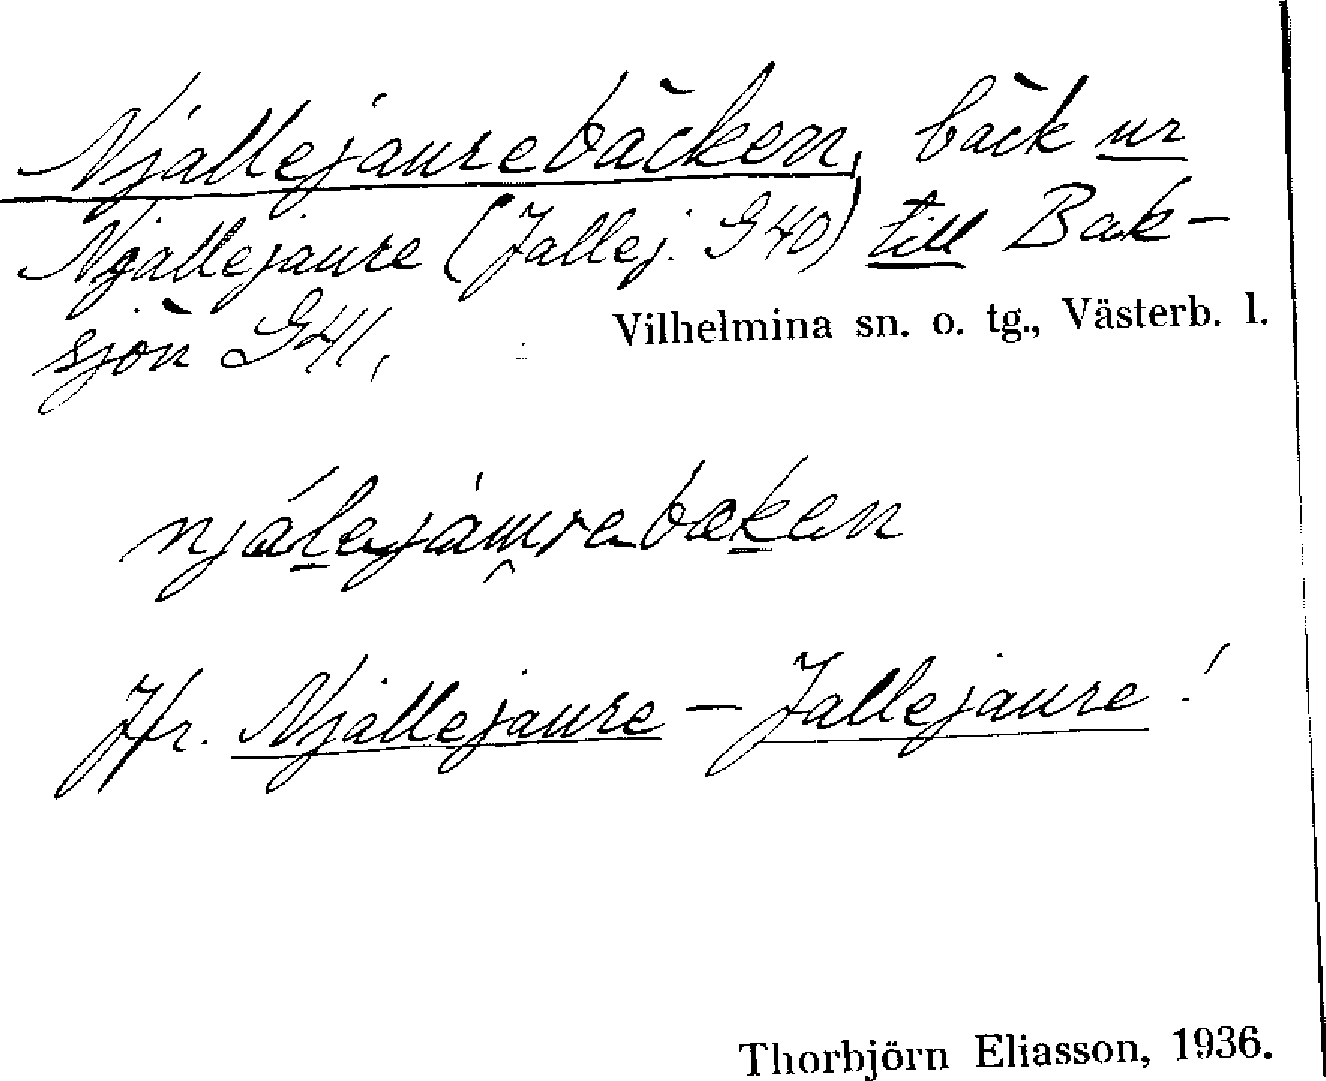 Njallejaurebäcken, bäck ur
Njallejaure (Jallej. G40) till Bak-
sjön G41,
Vilhelmina sn. o. tg., Västerb. l.
njálejàurebæken
Jfr. Njallejaure – Jallejaure!
Thorbjörn Eliasson, 1936.